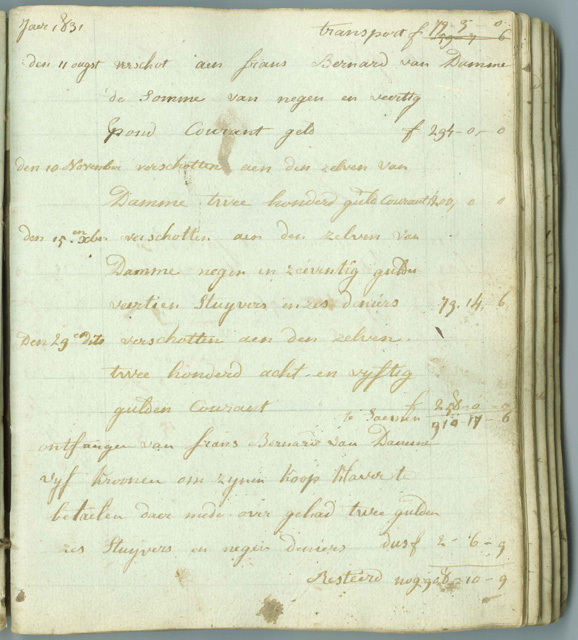 Jaer 1831 transport f 79-3-0
den 11 augst verschot aen frans Bernard van Damme
de Somme van negen en veertig
pond Courant geld f 294-0-0
den 10 November verschotten aen den zelven van
Damme twee honderd guld Courant 200, 0 0
den 15 en Xber verschotten aen den zelven van
Damme negen en zeeventig gulden
veertien Stuyvers en zes deniers 79-14-6
Den 29 e dito verschotten aen den zelven
twee honderd acht en vyftig
gulden Courant f 258-0-0
te saemen 910 17-6
ontfangen van frans Bernard van Damme
vyf kroonen om zynen koop klaver te
betaelen daer mede over gehad twee gulden
zes Stuyvers en negen deniers dus f 2-6-9
Resteerd nog 908-10-9